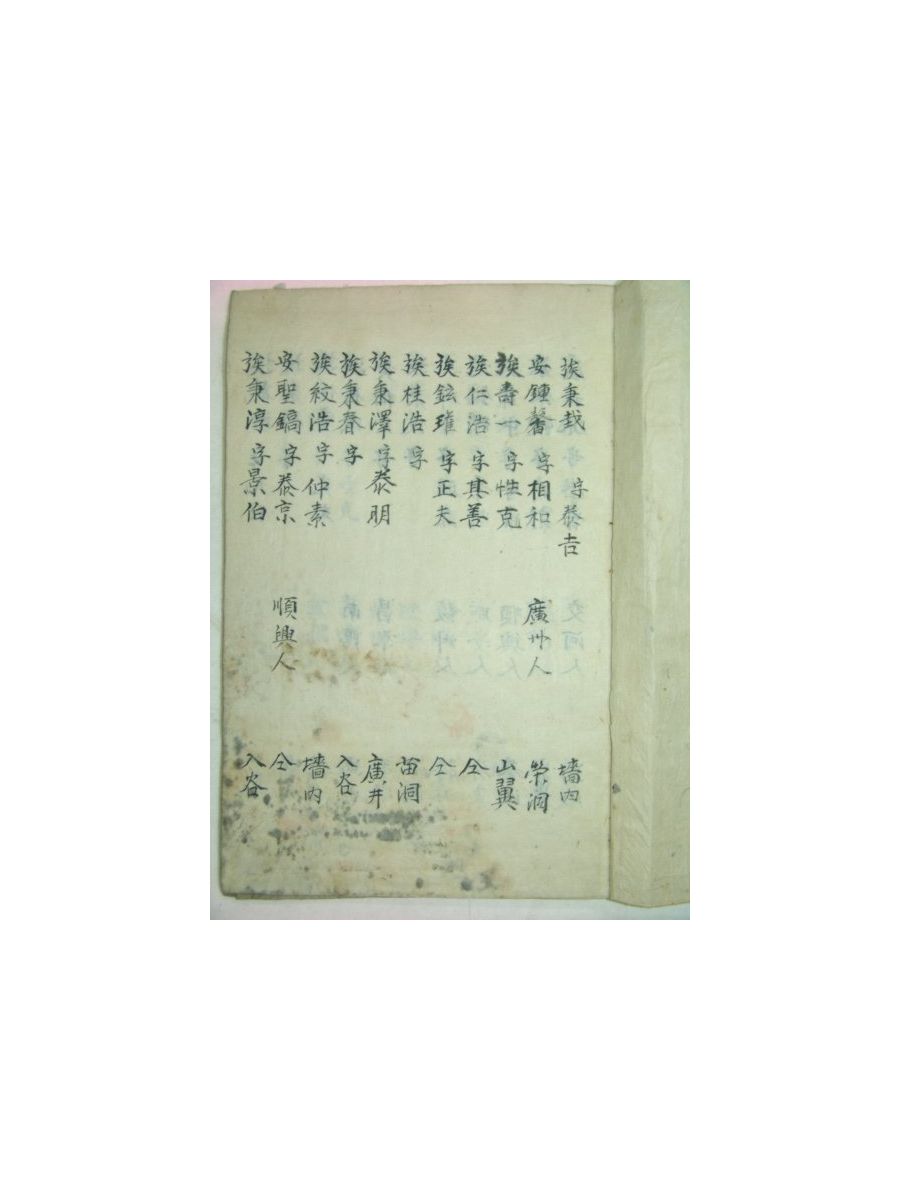 族秉哉 字泰吉 墻內
安鍾馨 字相和 廣州人 榮洞
族壽一 字性克 山翼
族仁浩 字其善 仝
族鉉璀 字正夫 仝
族桂浩 字 苗洞
族秉澤 字泰明 廣井
族秉春 字 入谷
族紋浩 字仲素 墻內
安聖鎬 字泰京 順興人 仝
族秉淳 字景伯 入谷